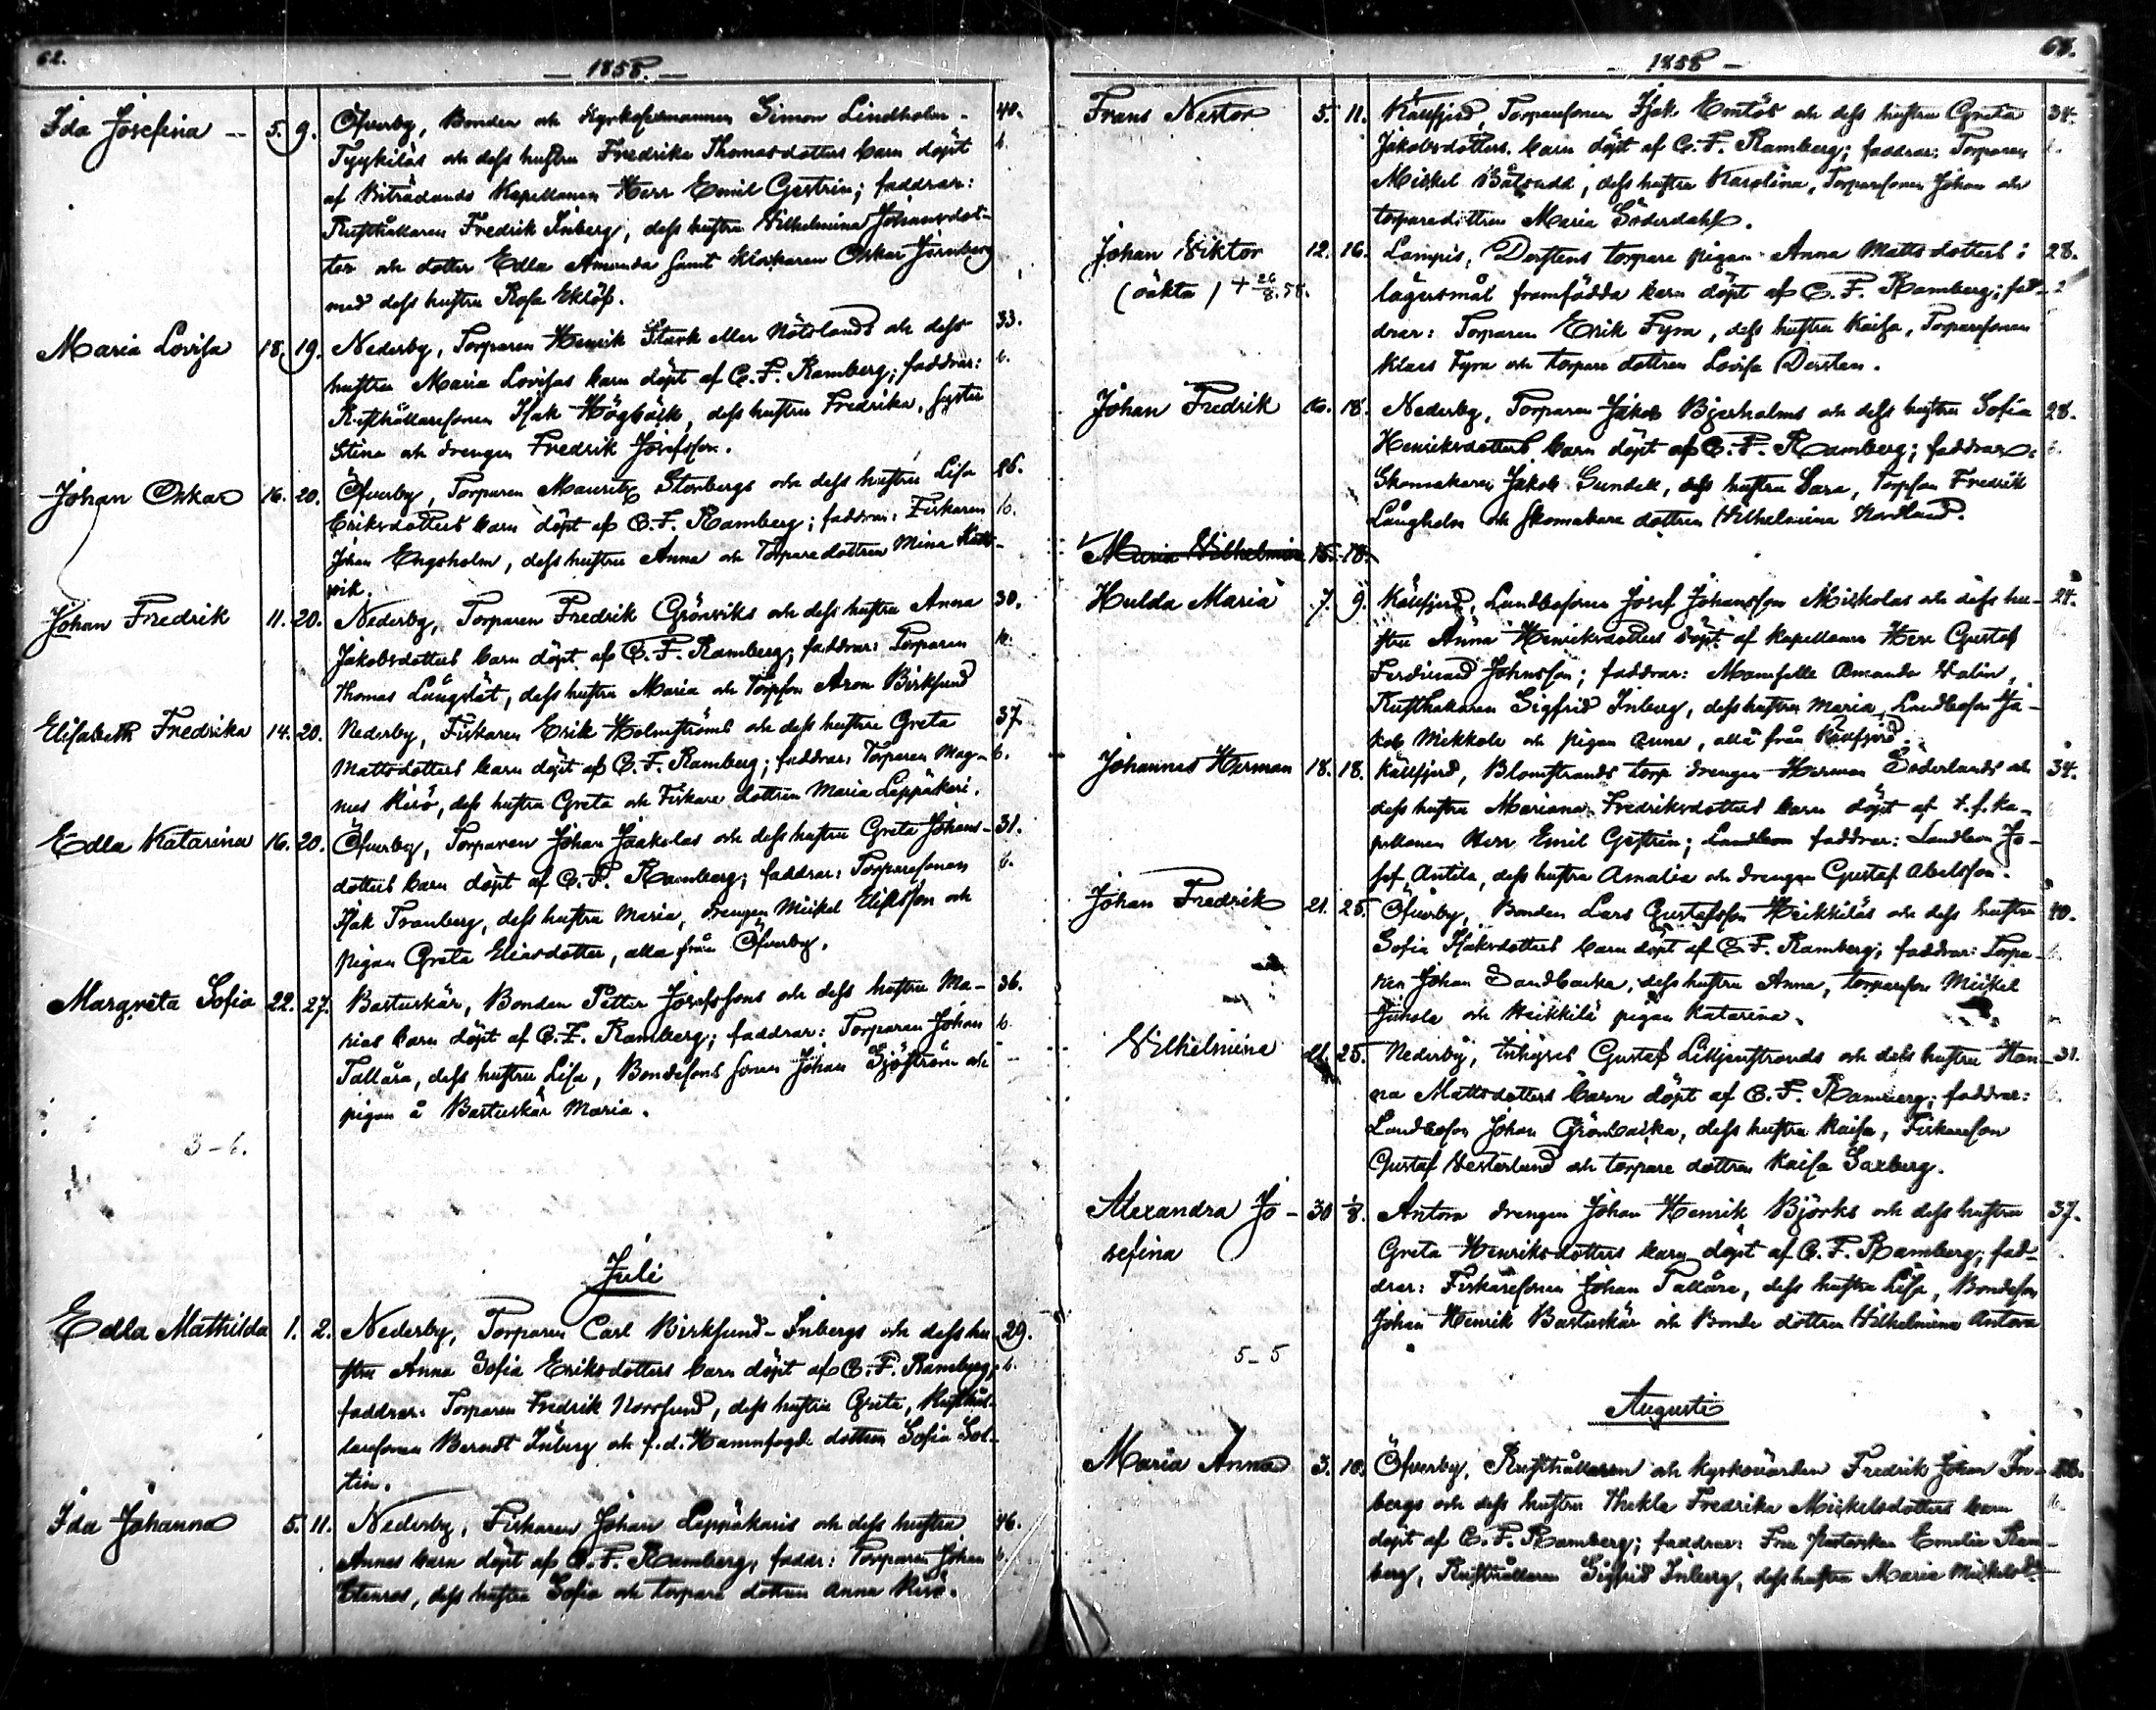 62.
— 1858. —
Ida Josefina — 5. 9. Öfverby, Bonden och Kyrkosexmannen Simon Lindholm- 40.
Tyykiläs och dess hustru Fredrika Thomasdotters barn döpt b.
af Biträdande Kapellanen Herr Emil Gestrin; faddrar:
Rusthållaren Fredrik Inberg, dess hustru Vilhelmina Johansdot-
ter och dotter Edla Amanda samt Klockaren Oskar Jernberg
med dess hustru Rosa Eklöf.
Maria Lovisa 18. 19. Nederby, Torparen Henrik Stark eller Nötölands och dess 33.
hustru Maria Lovisas barn döpt af C. F. Ramberg; faddrar: b.
Rusthållaresonen Isak Högbäck, dess hustru Fredrika, syster
Stina och drengen Fredrik Josefsson.
Johan Oskar 16. 20. Öfverby, Torparen Mauritz Stenbergs och dess hustru Lisa 26.
Eriksdotters barn döpt af C. F. Ramberg; faddrar: Fiskaren b.
Johan Engsholm, dess hustru Anna och Torparedottren Mina
vik.
Johan Fredrik 11. 20. Nederby, Torparen Fredrik Grönviks och dess hustru Anna 30.
Jakobsdotters barn döpt af C. F. Ramberg; faddrar: Torparen b.
Thomas Långslät, dess hustru Maria och Torpson Aron Birksund
Elisabeth Fredrika 14. 20. Nederby, Fiskaren Erik Holmströms och dess hustru Greta 37.
Mattsdotters barn döpt af C. F. Ramberg; faddrar: Torparen Mag- b.
nus Kirö, dess hustru Greta och Fiskare dottren Maria Leppäkari.
Edla Katarina 16. 20. Öfverby, Torparen Johan Jaakolas och dess hustru Greta Johans- 31.
dotters barn döpt af C. F. Ramberg; faddrar: Torparesonen b.
Isak Tranberg, dess hustru Maria, drengen Mickel Eliasson och
pigan Greta Eliasdotter, alla från Öfverby.
Margreta Sofia 22. 27. Bastuskär, Bonden Petter Josefssons och dess hustru Ma- 36.
rias barn döpt af C. F. Ramberg; faddrar: Torparen Johan b.
Tallåra, dess hustru Lisa, Bondesons sonen Johan Sjöström och
pigan å Bastuskär Maria.
3–6.
Juli
Edla Mathilda 1. 2. Nederby, Torparen Carl Birksund-Inbergs och dess hu- 29.
stru Anna Sofia Eriksdotters barn döpt af C. F. Ramberg; b.
faddrar: Torparen Fredrik Norrsund, dess hustru Greta, Rusthål-
laresonen Berndt Inberg och f. d. Hamnfogde dottren Sofia Sol-
tin.
Ida Johanna 5. 11. Nederby, Fiskaren Johan Leppäkaris och dess hustru 46.
Annas barn döpt af C. F. Ramberg, faddr: Torparen Johan b.
Stenros, dess hustru Sofia och torpare dottren Anna Kirö.
63.
— 1858 —
Frans Nestor 5. 11. Källfjerd, Torparesonen Isak Emtös och dess hustru Greta 34.
Jakobsdotters barn döpt af C. F. Ramberg; faddrar: Torparen b.
Mickel Bålsudd, dess hustru Karolina, Torparesonen Johan och
torparedottren Maria Söderdahl.
Johan Viktor 12. 16. Lampis, Derstens torpare pigan Anna Mattsdotters i 28.
(oäkta) + 26/8.58. lägersmål framfödda barn döpt af C. F. Ramberg; fad-
drar: Torparen Erik Fyra, dess hustru Kaisa, Torparesonen
Klaes Fyra och torpare dottren Lovisa Dersten.
Johan Fredrik 16. 18. Nederby, Torparen Jakob Bjerholms och dess hustru Sofia 28.
Henriksdotters barn döpt af C. F. Ramberg; faddrar: b.
Skomakaren Jakob Gundell, dess hustru Sara, Torpson Fredrik
Långholm och skomakare dottren Vilhelmina Nordlund.
Maria Vilhelmina 15. 18.
Hulda Maria 7. 9. Källfjerd, Landbosonen Josef Johansson Mickolas och dess hu- 24.
stru Anna Henriksdotters döpt af Kapellanen Herr Gustaf
Ferdinand Johnsson; faddrar: Mamselle Amanda Valin,
Rusthållaren Sigfrid Inberg, dess hustru Maria, Landboson Ja-
kob Mickola och pigan Anna, alla från Källfjerd.
Johannes Herman 18. 18. Källfjerd, Blomstrands torp drengen Herman Söderlunds och 34.
dess hustru Mariana Fredriksdotters barn döpt af t. f. Ka-
pellanen Herr Emil Gestrin; Landbon faddrar: Landbon Jo-
sef Antila, dess hustru Amalia och drengen Gustaf Abelsson.
Johan Fredrik 21. 25. Öfverby, Bonden Lars Gustafsson Heikkiläs och dess hustru 40.
Sofia Isaksdotters barn döpt af C. F. Ramberg; faddrar: Torpa-
ren Johan Sandbacka, dess hustru Anna, torpareson Mickel
Junola och Heikkilä pigan Katarina.
Vilhelmina 21. 25. Nederby, Inhyses Gustaf Liljenstrands och dess hustru Han- 31.
na Mattsdotters barn döpt af C. F. Ramberg; faddrar: b.
Landboson Johan Grönbacka, dess hustru Kaisa, Fiskareson
Gustaf Vesterlund och torpare dottren Kaisa Saxberg.
Alexandra Jo- 30 1/8. Antova drengen Johan Henrik Björks och dess hustru 37.
sefina Greta Henriksdotters barn döpt af C. F. Ramberg; fad-
drar: Fiskaresonen Johan Tallåra, dess hustru Lisa, Bondeson
Johan Henrik Bastuskär och Bonde dottren Vilhelmina Antova
5–5
Augusti
Maria Anna 3. 10. Öfverby, Rusthållaren och kyrkovärden Fredrik Johan In-
bergs och dess hustru Thekla Fredrika Mickelsdotters barn b.
döpt af C. F. Ramberg; faddrar: Fru Pastorskan Emelie Ram-
berg, Rusthållaren Sigfrid Inberg, dess hustru Maria Mickelsd:r